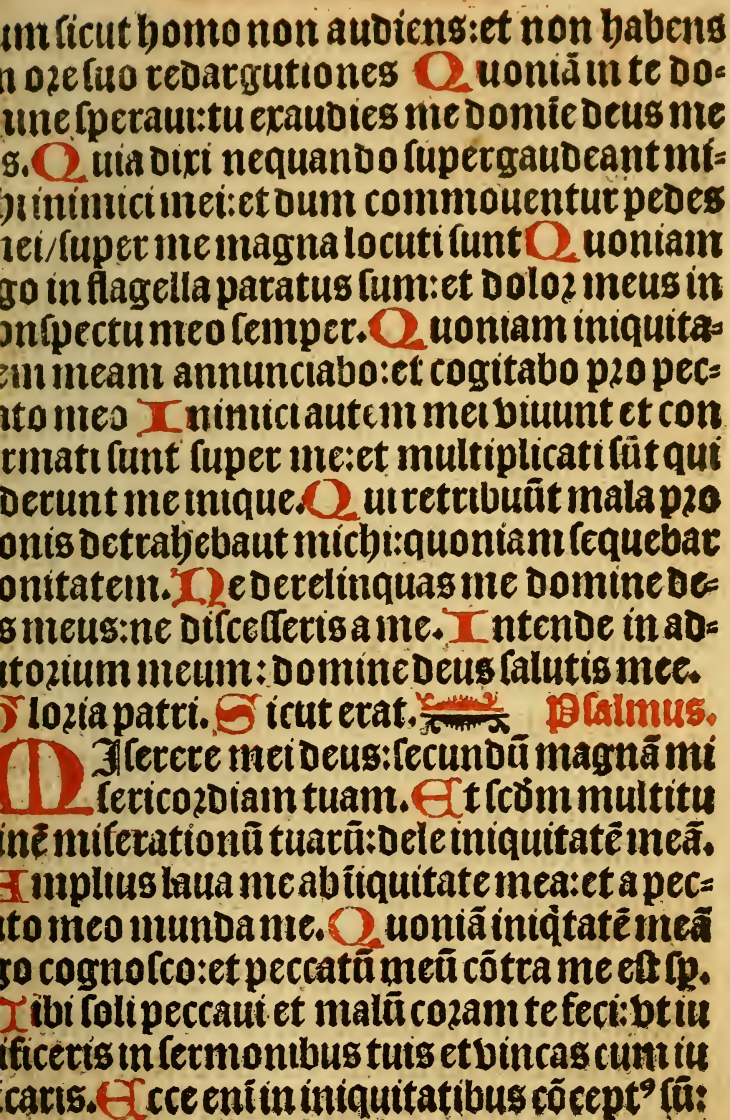 um sicut homo non audiens:et non habens
n ore suo redargutiones Quoniā in te do⸗
ine speraui:tu exaudies me domīe deus me
s. Quia dixi nequando supergaudeant mi⸗
hi inimici mei:et dum commouentur pedes
mei/super me magna locuti sunt Quoniam
go in flagella paratus sum:et dolor meus in
onspectu meo semper. Quoniam iniquita⸗
em meam annunciabo:et cogitabo pro pec⸗
ato meo Inimici autem mei viuunt et con
rmati sunt super me:et multiplicati sūt qui
derunt me inique. Qui retribuūt mala pro
onis detrahebaut michi:quoniam sequebar
onitatem. Ne derelinquas me domine de⸗
s meus:ne discesseris a me. Intende in ad⸗
utorium meum:domine deus salutis mee.
Gloria patri. Sicut erat. Psalmus.
MIserere mei deus:secundū magnā mi
sericordiam tuam. Et scdm̄ multitu
inē miserationū tuarū:dele iniquitatē meā.
Amplius laua me ab īiquitate mea:et a pec⸗
ato meo munda me. Quoniā iniq̇tatē meā
go cognosco:et peccatū meū cōtra me est sp.
Tibi soli peccaui et malū coram te feci:vt iu
ificeris in sermonibus tuis et vincas cum iu
icaris. Ecce enī in iniquitatibus cōceptꝰ sū: